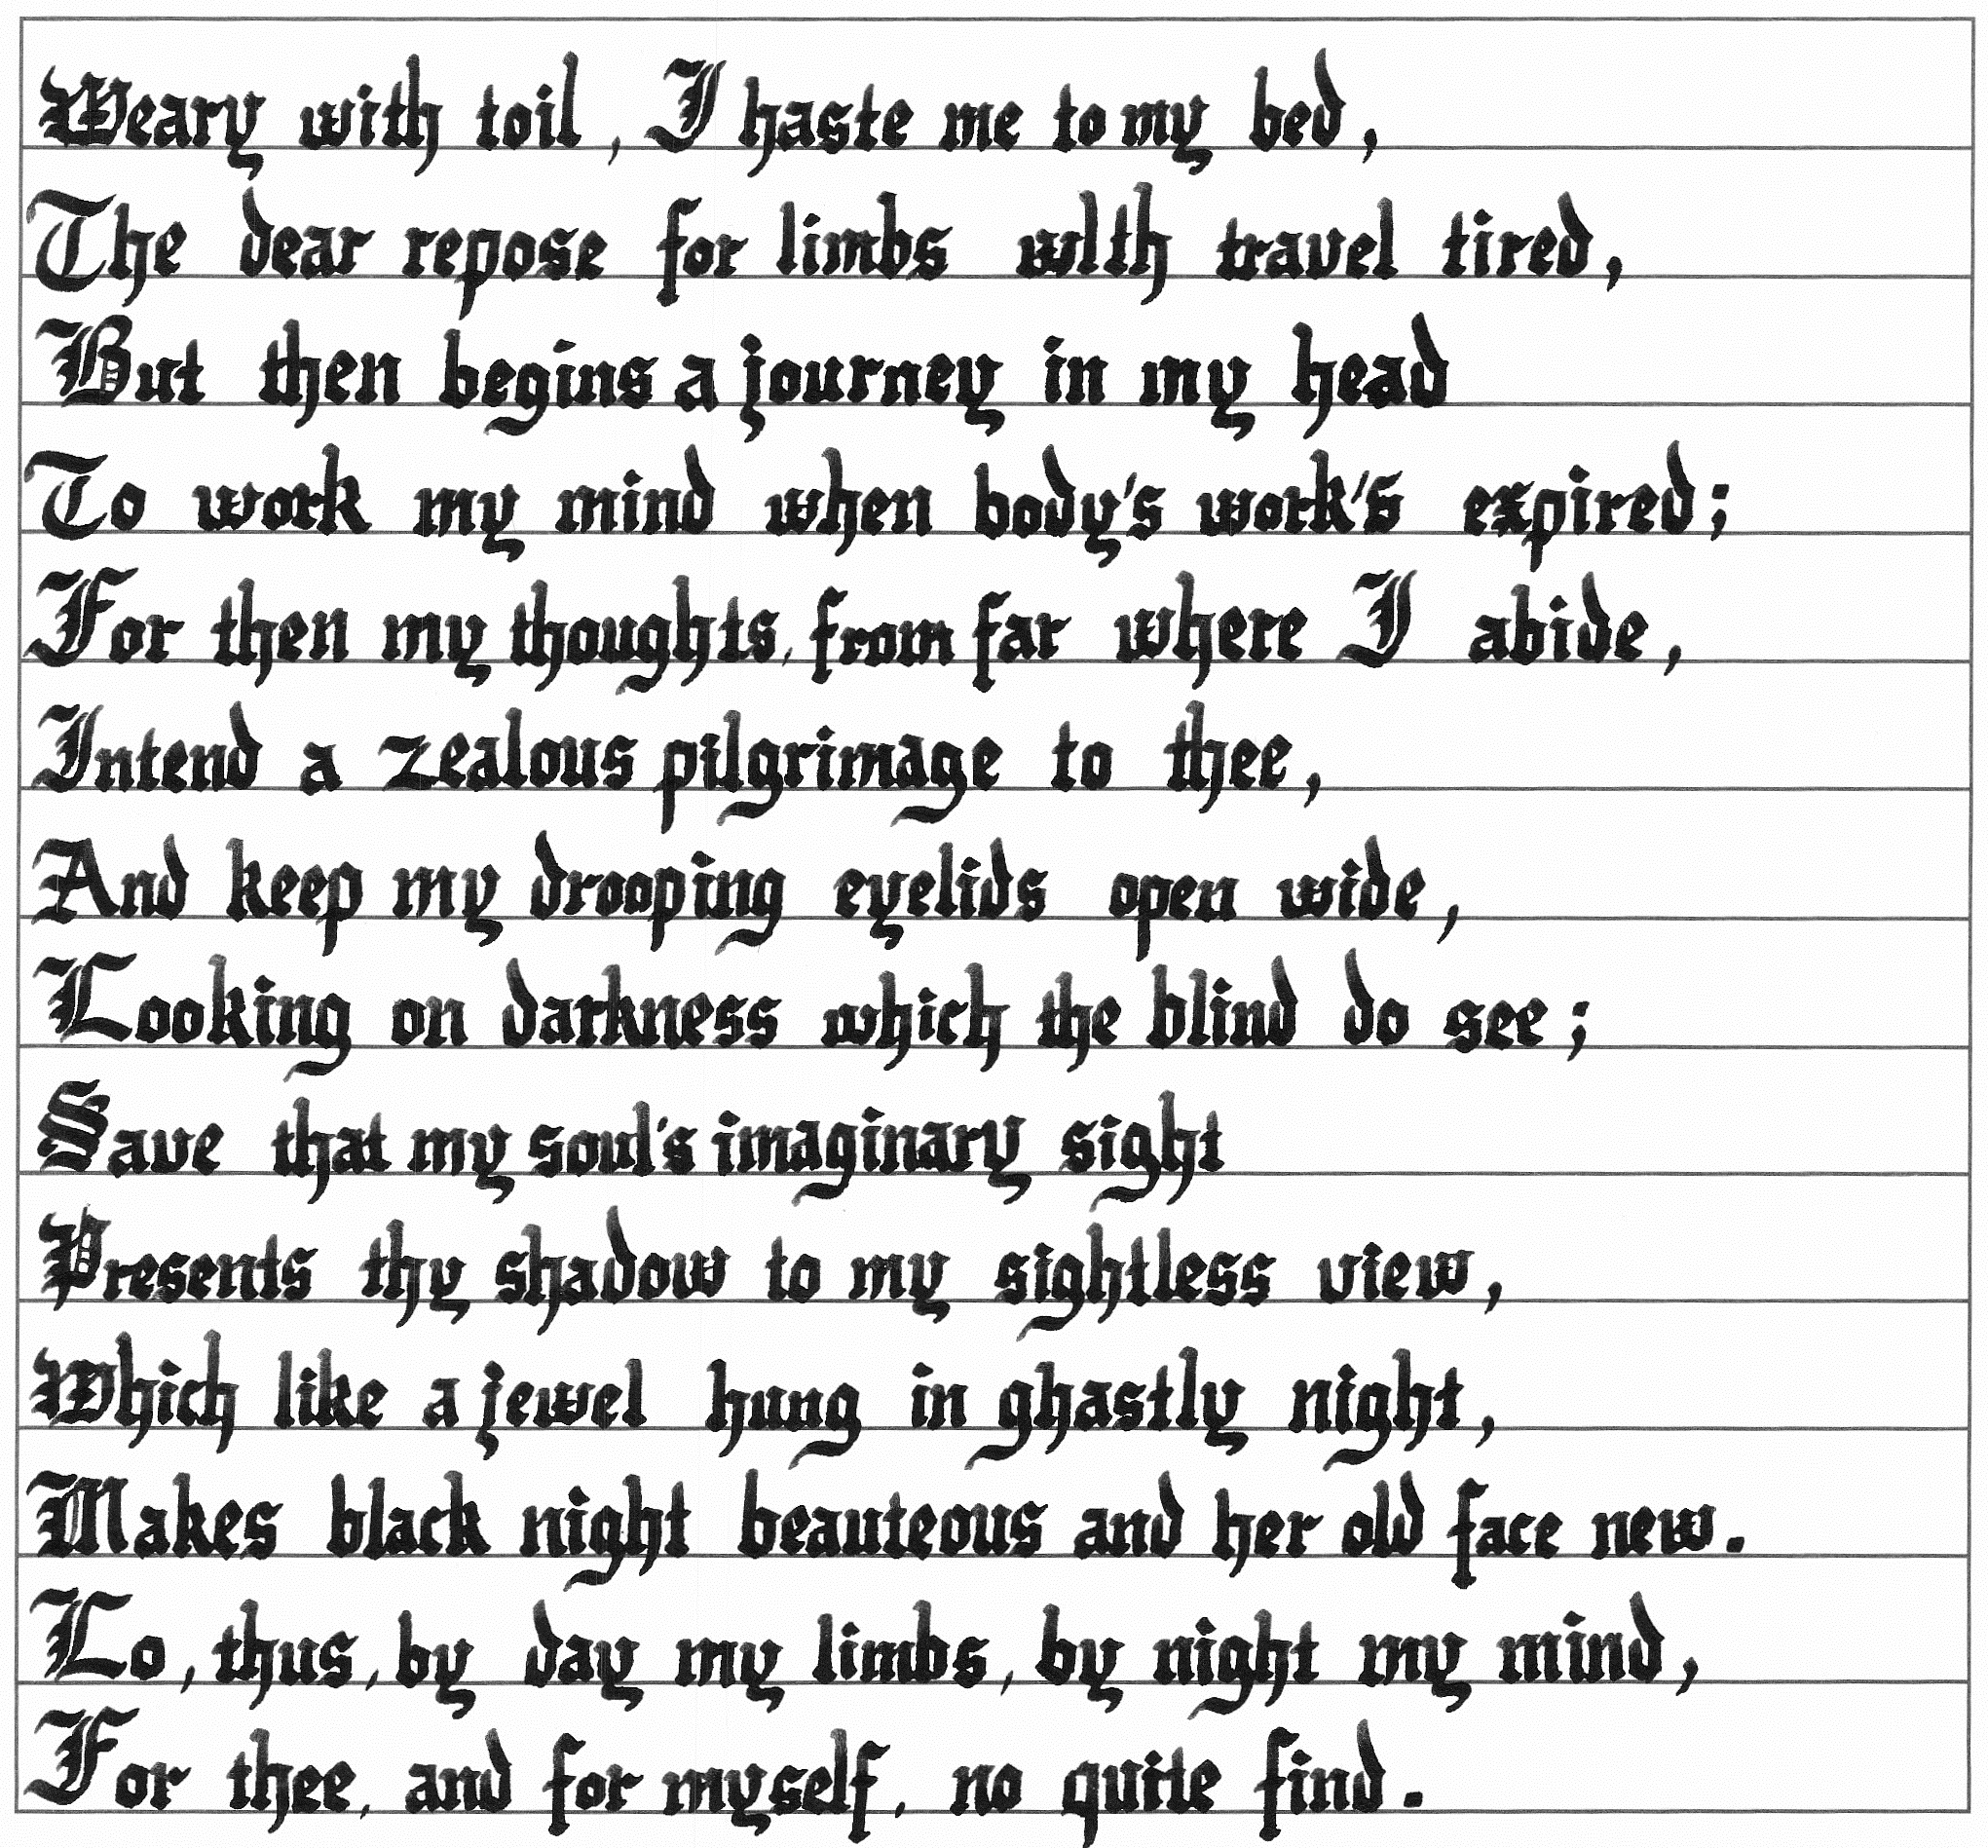 Weary with toil, I haste me to my bed,
The dear repose for limbs wlth travel tired,
But then begins a journey in my head
To work my mind when body's work's expired;
For then my thoughts, from far where I abide,
Intend a zealous pilgrimage to thee,
And keep my drooping eyelids open wide,
Looking on darkness which the blind do see;
Save that my soul's imaginary sight
Presents thy shadow to my sightless view,
Which like a jewel hung in ghastly night,
Makes black night beauteous and her old face new.
Lo, thus, by day my limbs, by night my mind,
For thee, and for myself, no quite find.